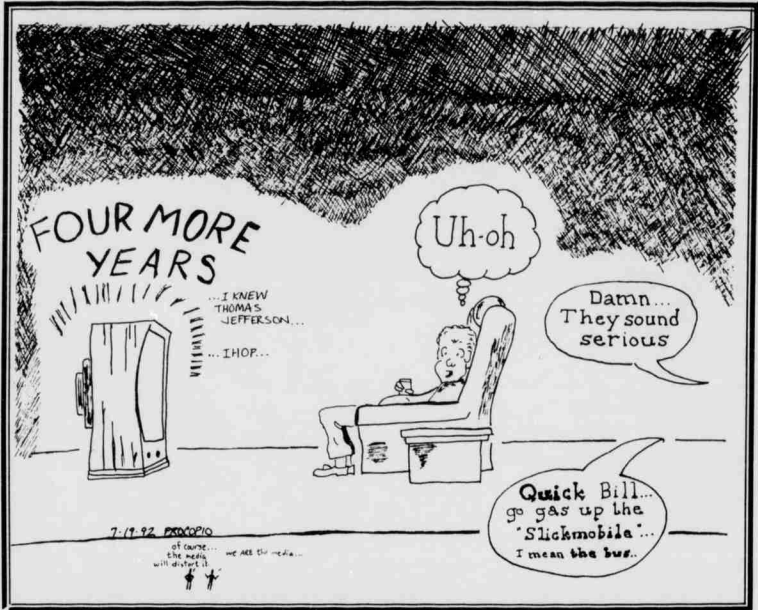 FOUR MORE
YEARS
...I KNEW
THOMAS
JEFFERSON...
...IHOP...
Uh-oh
Damn...
They sound
serious
Quick Bill...
go gas up the
"Slickmobile"...
I mean the bus..
7-19-92 PROCOPIO
of course...
the media
will distort it.
we ARE the media...